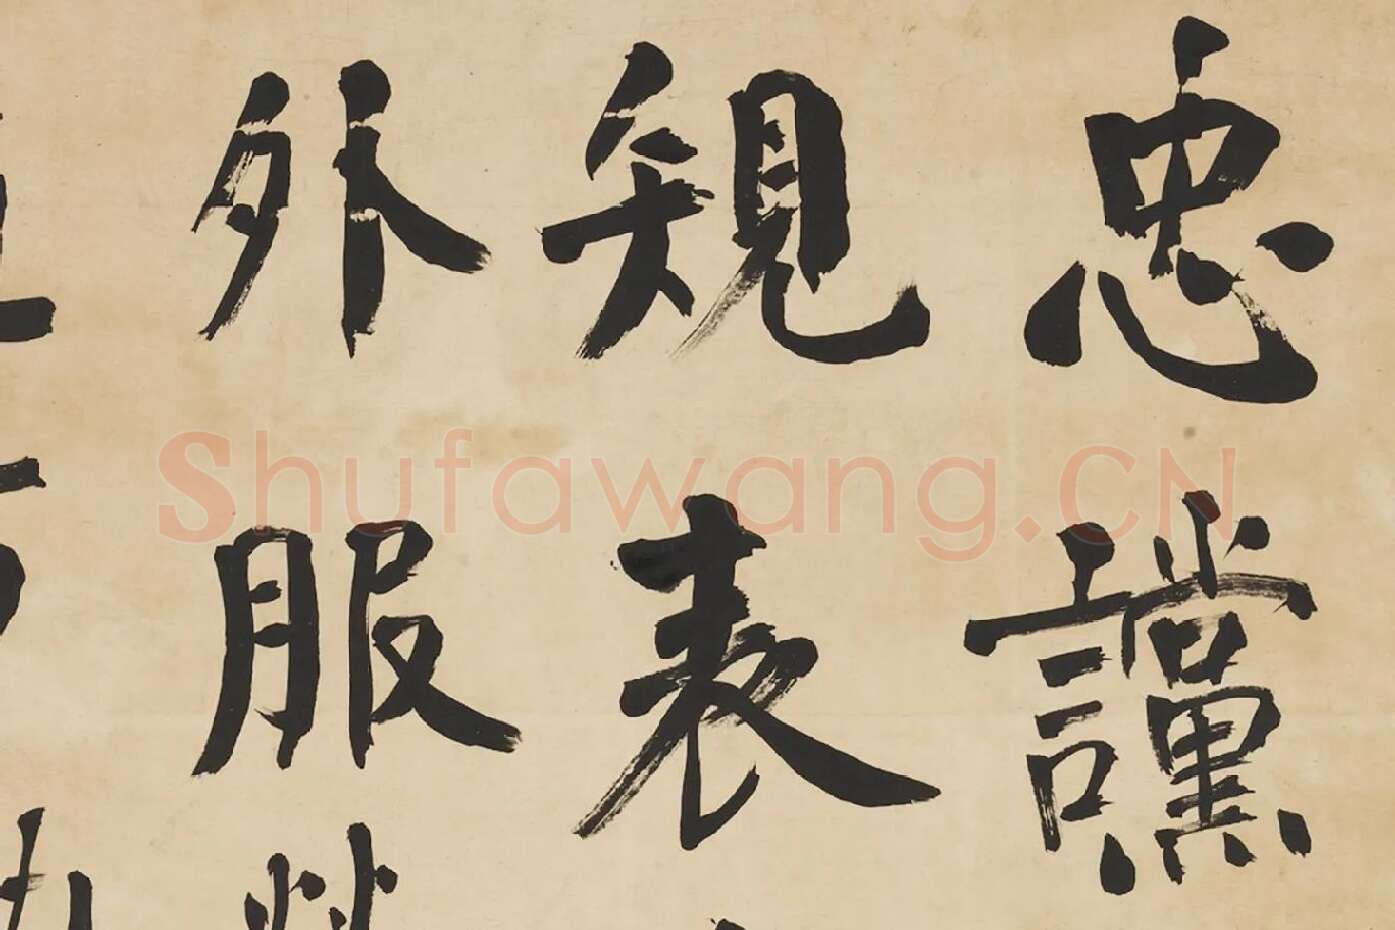 忠讜
規表
外服
Shufawang.CN